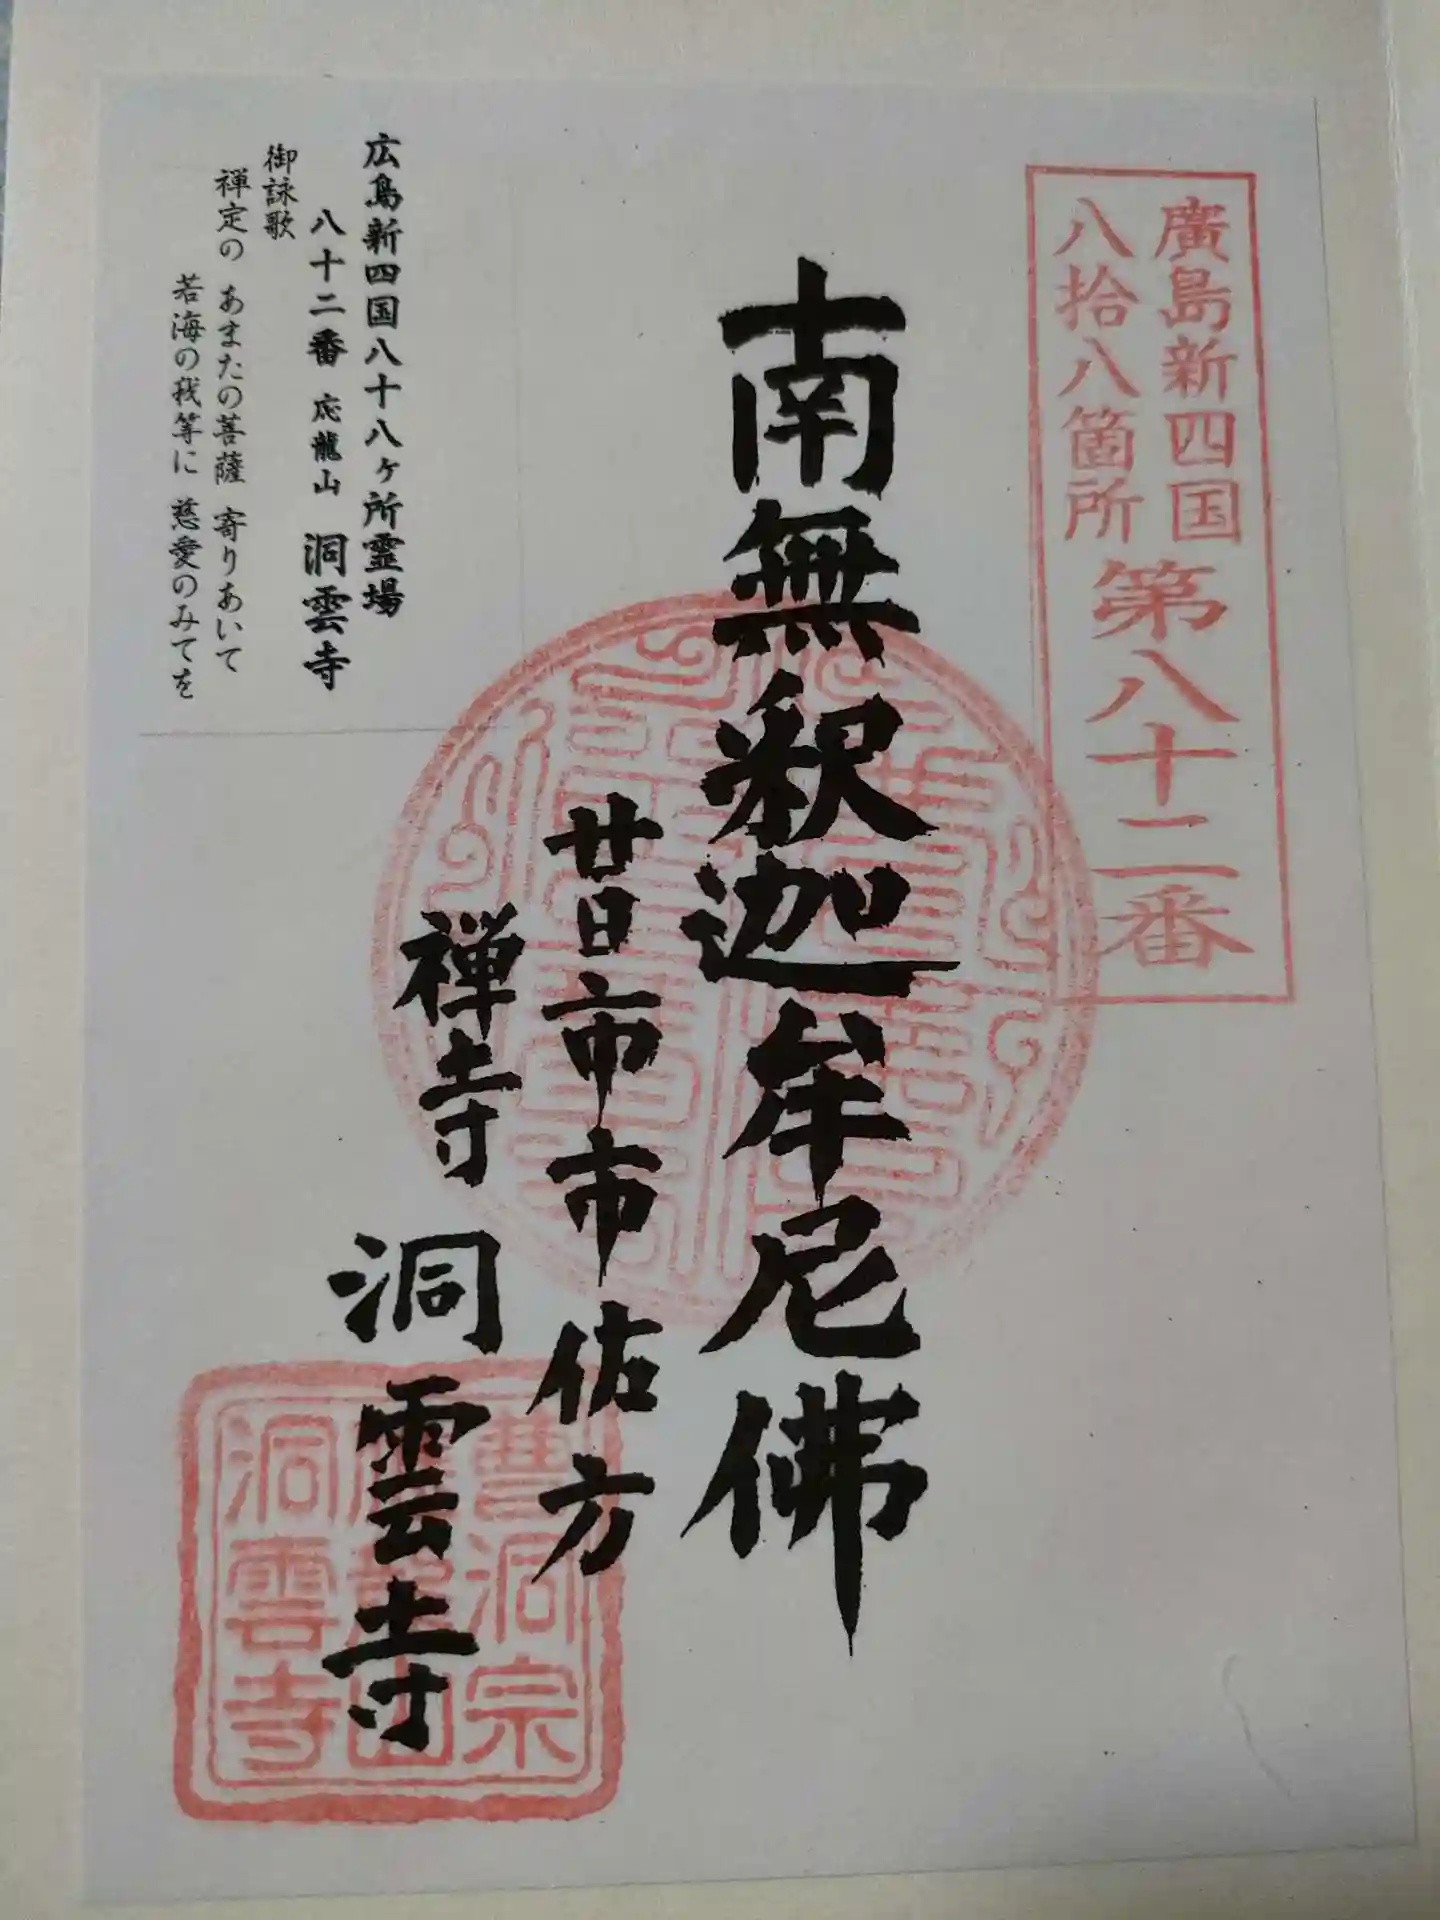 廣島新四国
八拾八箇所
第八十二番
南無釈迦牟尼佛
廿日市市佐方
禅寺 洞雲寺
曹洞宗
應龍山
洞雲寺
広島新四国八十八ヶ所霊場
八十二番 応龍山 洞雲寺
御詠歌
禅定の あまたの菩薩 寄りあいて
若海の我等に 慈愛のみてを